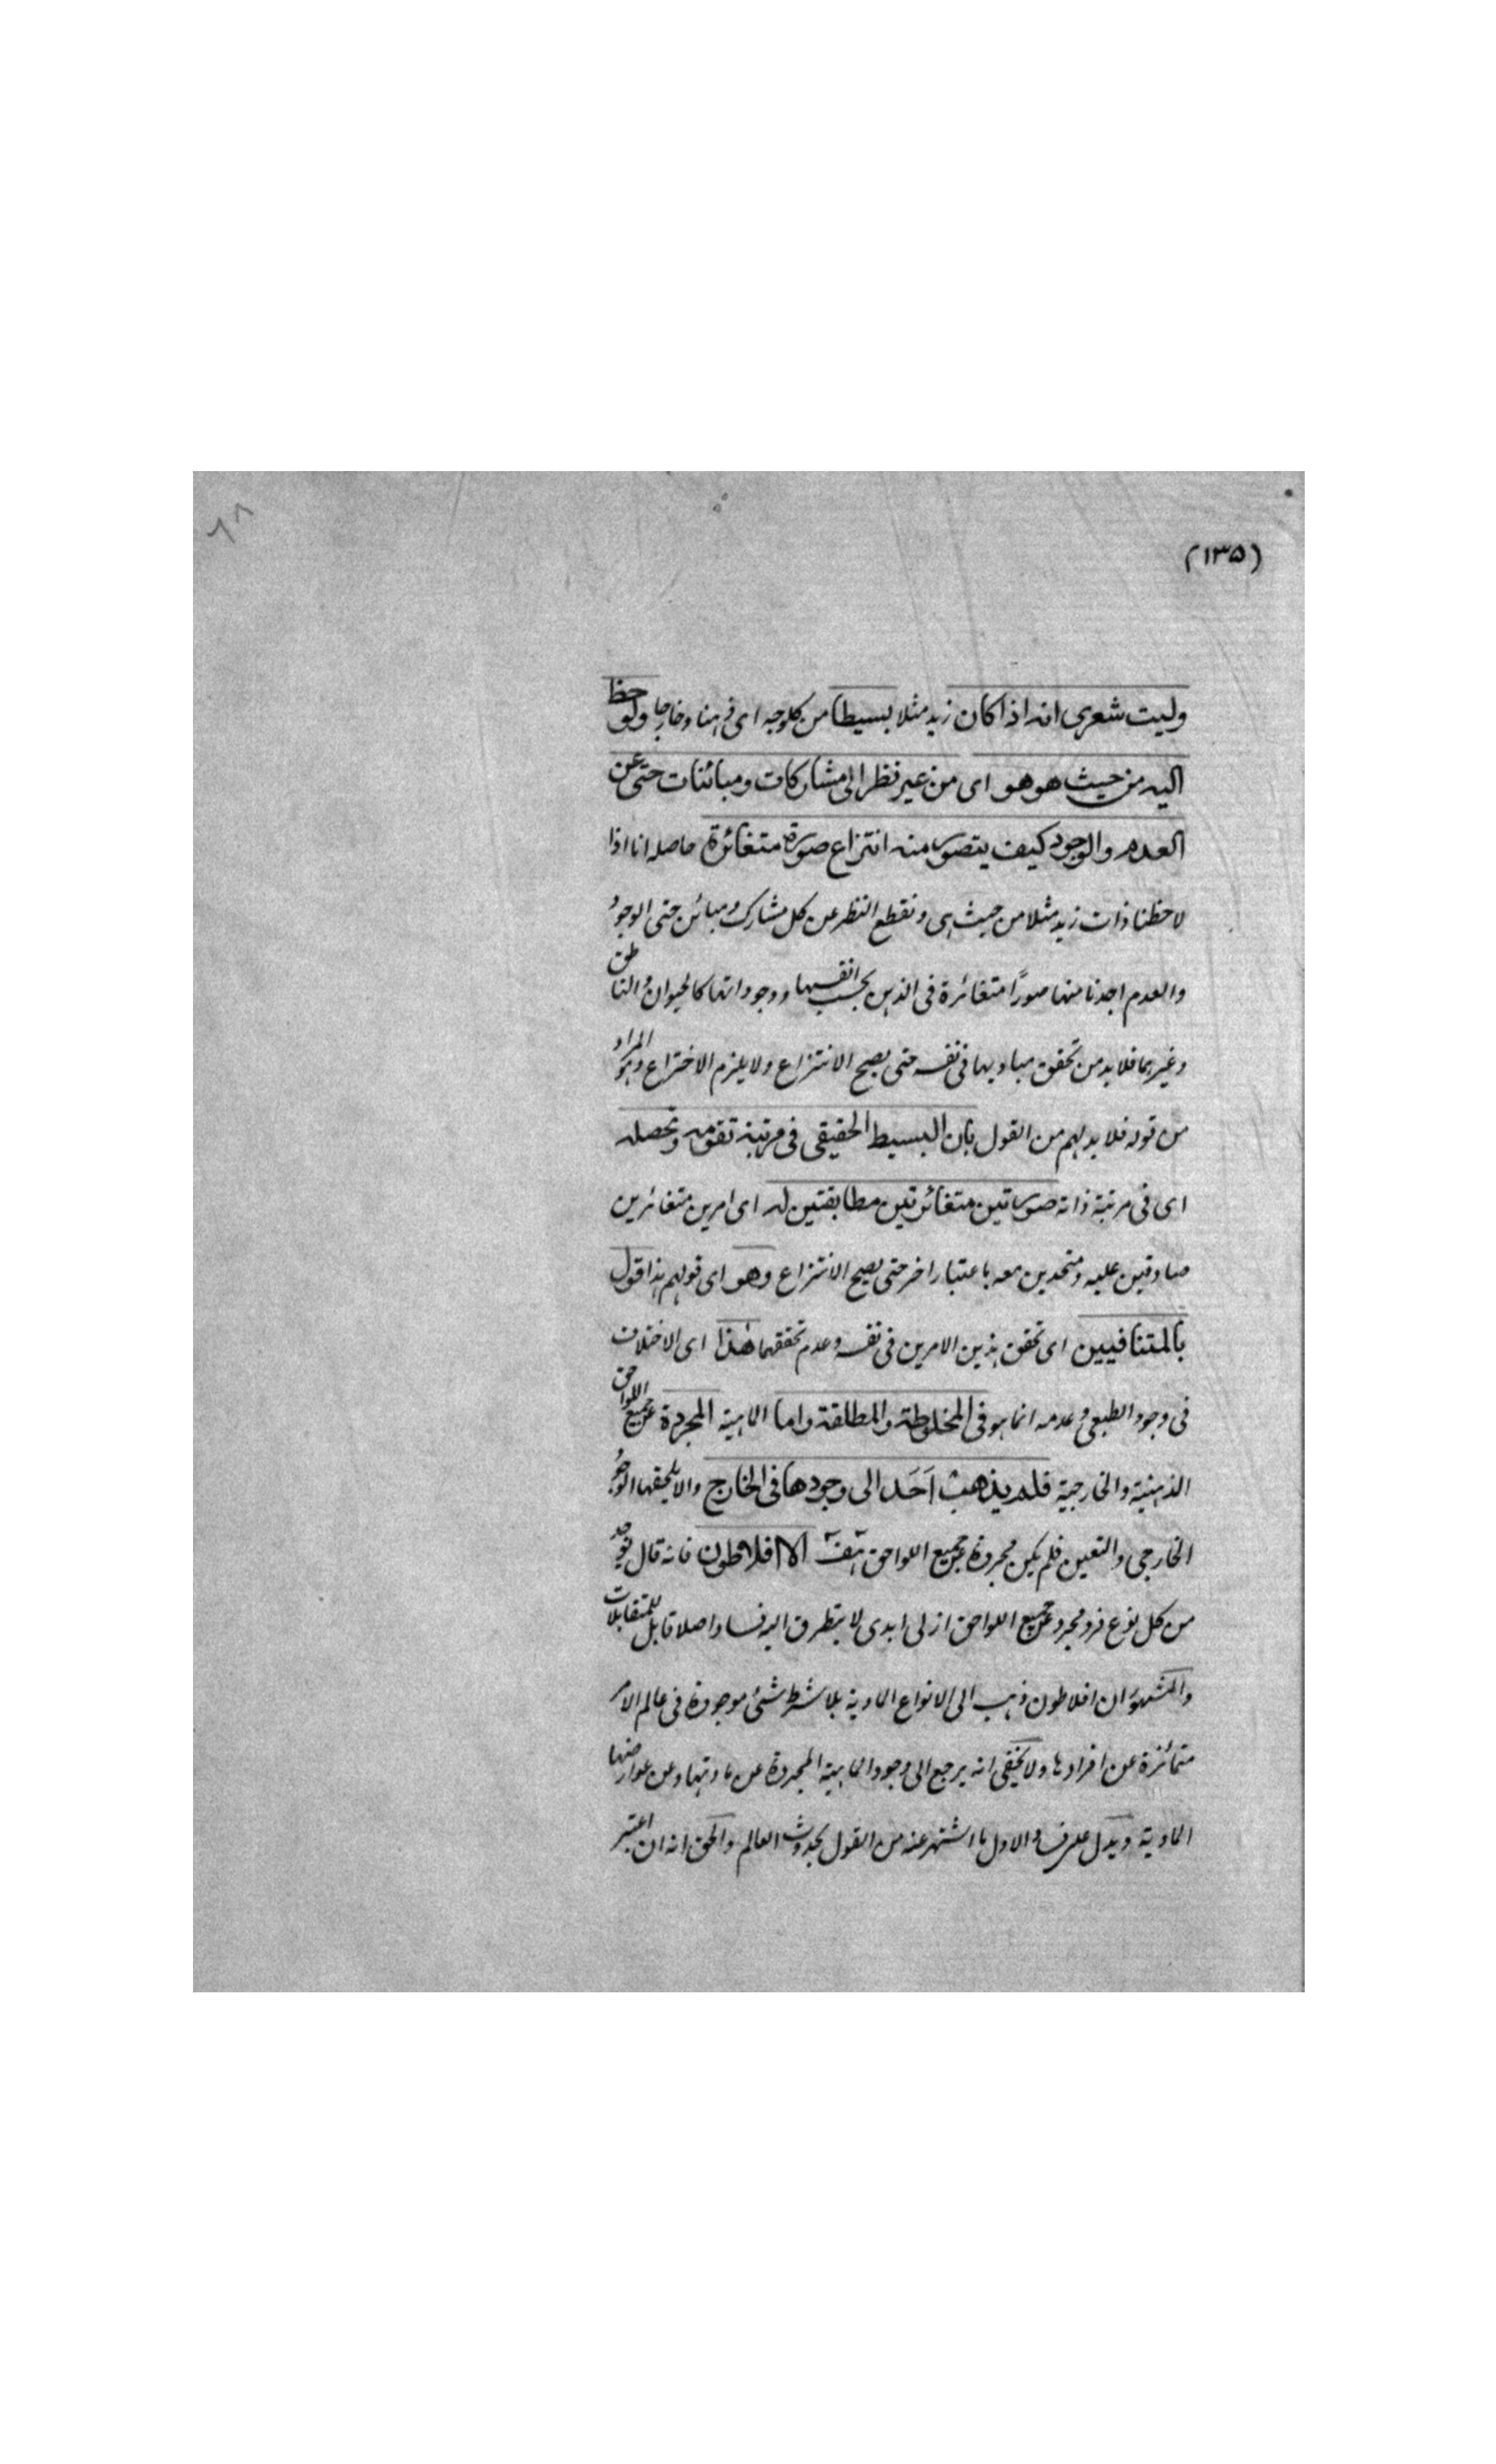 (١٣٥)
٦٨
وليت شعرى انه اذا كان زيد مثلا بسيطا من كل وجه اى ذهنا وخارجا ولوحظ
اليه من حيث هو هو اى من غير نظر الى مشاركات ومبائنات حتى عن
العدم والوجود كيف يتصور منه انتزاع صورة متغائرة حاصله انا اذا
لاحظنا ذات زيد مثلا من حيث هى ونقطع النظر عن كل مشارك ومبائن حتى الوجود
والعدم اخذنا منها صورًا متغائرة فى الذهن بحسب انفسها ووجوداتها كالحيوان والناطق
وغيرهما فلا بد من تحقق مباديها فى نفسه حتى يصح الانتزاع ولا يلزم الاختراع وهو المراد
من قوله فلا بد لهم من القول بان البسيط الحقيقى فى مرتبة تقومه وتحصله
اى فى مرتبة ذاته صورتين متغائرتين مطابقتين له اى امرين متغائرين
صادقين عليه ومتحدين معه باعتبار اخر حتى يصح الانتزاع وهو اى قولهم هذا قول
بالمتنافيين اى تحقق هذين الامرين فى نفسه وعدم تحققهما هذا اى الاختلاف
فى وجود الطبعى وعدمه انما هو فى المخلوطة والمطلقة واما الماهية المجردة عن جميع اللواحق
الذهنية والخارجية فلم يذهب اَحَد الى وجودها فى الخارج والا يلحقها الوجود
الخارجى والتعين فلم يكن مجردة عن جميع اللواحق هف الا افلاطون فانه قال يوجد
من كل نوع فرد مجرد عن جميع اللواحق ازلى ابدى لا يتطرق اليه فساد اصلا قابل للمتقابلات
والمشهور ان افلاطون ذهب الى الانواع المادية بلا شرط شئ موجودة فى عالم الامر
متمائزة عن افرادها ولا يخفى انه يرجع الى وجود الماهية المجردة عن مادتها وعن عوارضها
المادية ويدل على فساد الاول ما اشتهر عنه من القول بحدوث العالم والحق انه ان اعتبر